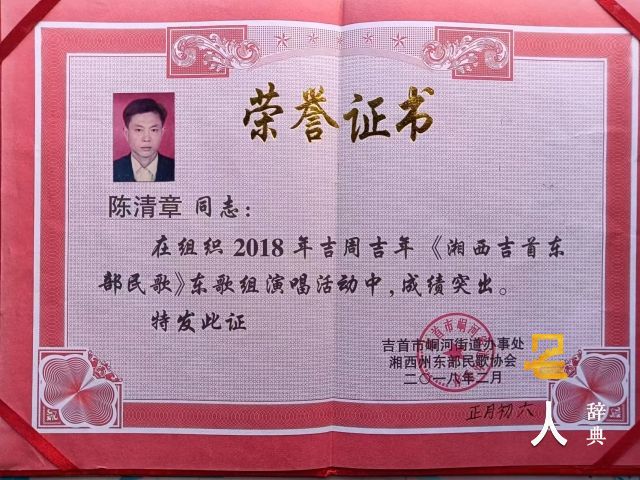 荣誉证书
陈清章 同志：
在组织 2018 年吉周吉年《湘西吉首东
部民歌》东歌组演唱活动中，成绩突出。
特发此证
吉首市峒河街道办事处
湘西州东部民歌协会
二〇一八年二月
正月初六
人 辞典